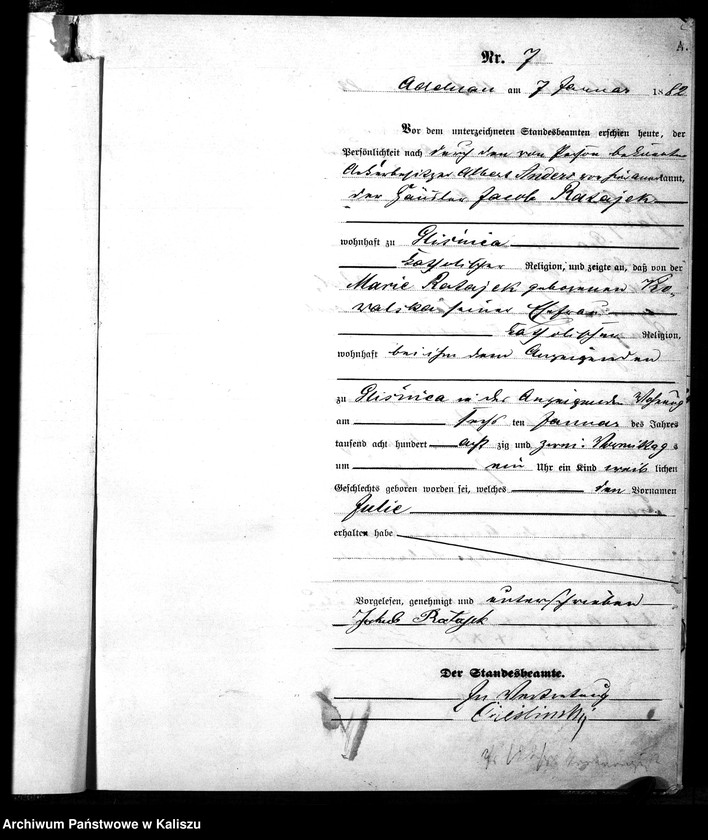 A.
Nr. 7
Adelnau am 7 Januar 1882
Vor dem unterzeichneten Standesbeamten erschien heute, der
Persönlichkeit nach durch den von Person bekannten
Ackerbesitzer Albert Anders anerkannt,
der Häusler Jacob Ratajek
wohnhaft zu Gliśnica
katholischer Religion, und zeigte an, daß von der
Marie Ratajek geborenen Ko-
walska seiner Ehefrau
katholischen Religion,
wohnhaft bei ihm dem Anzeigenden
zu Gliśnica in der Anzeigenden Wohnung
am sechs ten Januar des Jahres
tausend acht hundert acht zig und zwei Vormittag s
um ein Uhr ein Kind weib lichen
Geschlechts geboren worden sei, welches den Vornamen
Julie
erhalten habe
Vorgelesen, genehmigt und unterschrieben
Jakob Ratajek
Der Standesbeamte.
In Vertretung
Cieślinski
Archiwum Państwowe w Kaliszu